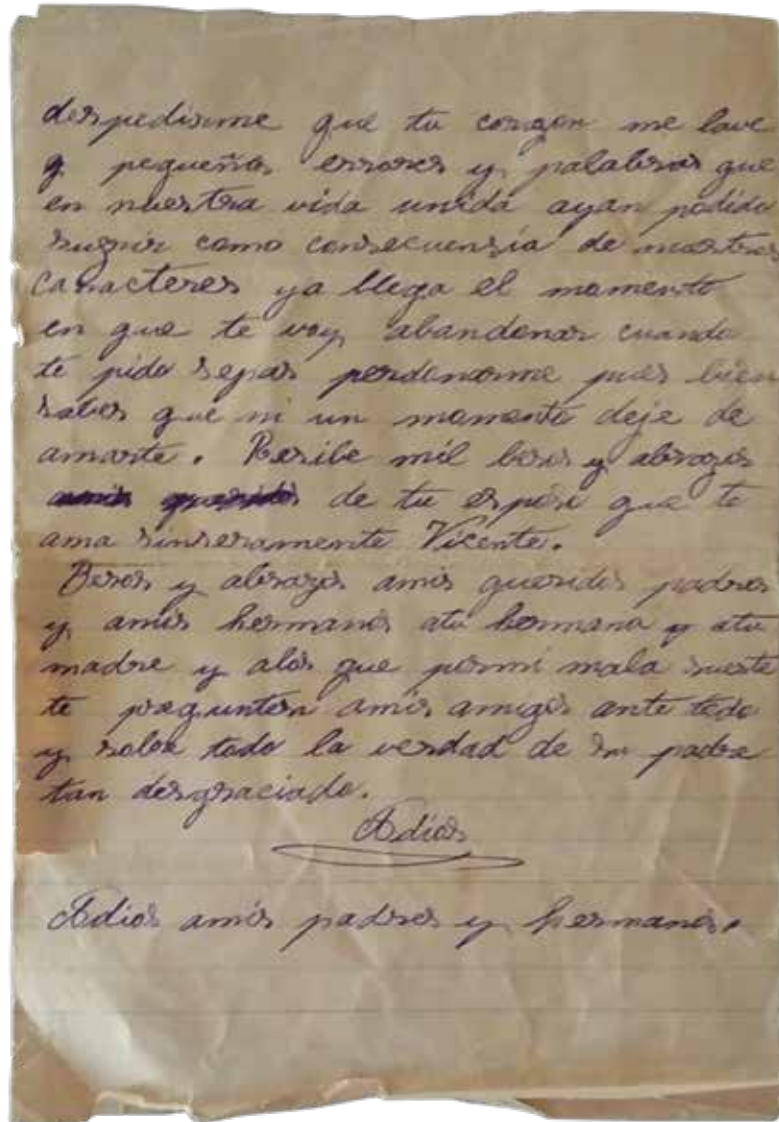 despedirme que tu corazon me lave
q pequeños errores y palabras que
en nuestra vida unida ayan podido
surgir como consecuensia de nuestros
caracteres ya llega el momento
en que te voy abandonar cuando
te pido sepas perdonarme pues bien
sabes que ni un momento deje de
amarte. Resibe mil besos y abrazos
amis queridos de tu esposo que te
ama sinseramente Vicente.
Besos y abrazos amis queridos padres
y amis hermanos atu hermana y atu
madre y alos que pormi mala suerte
te preguntern amis amigos ante todo
y sobre todo la verdad de su padre
tan desgraciado.
Adios
Adios amis padres y hermanos.